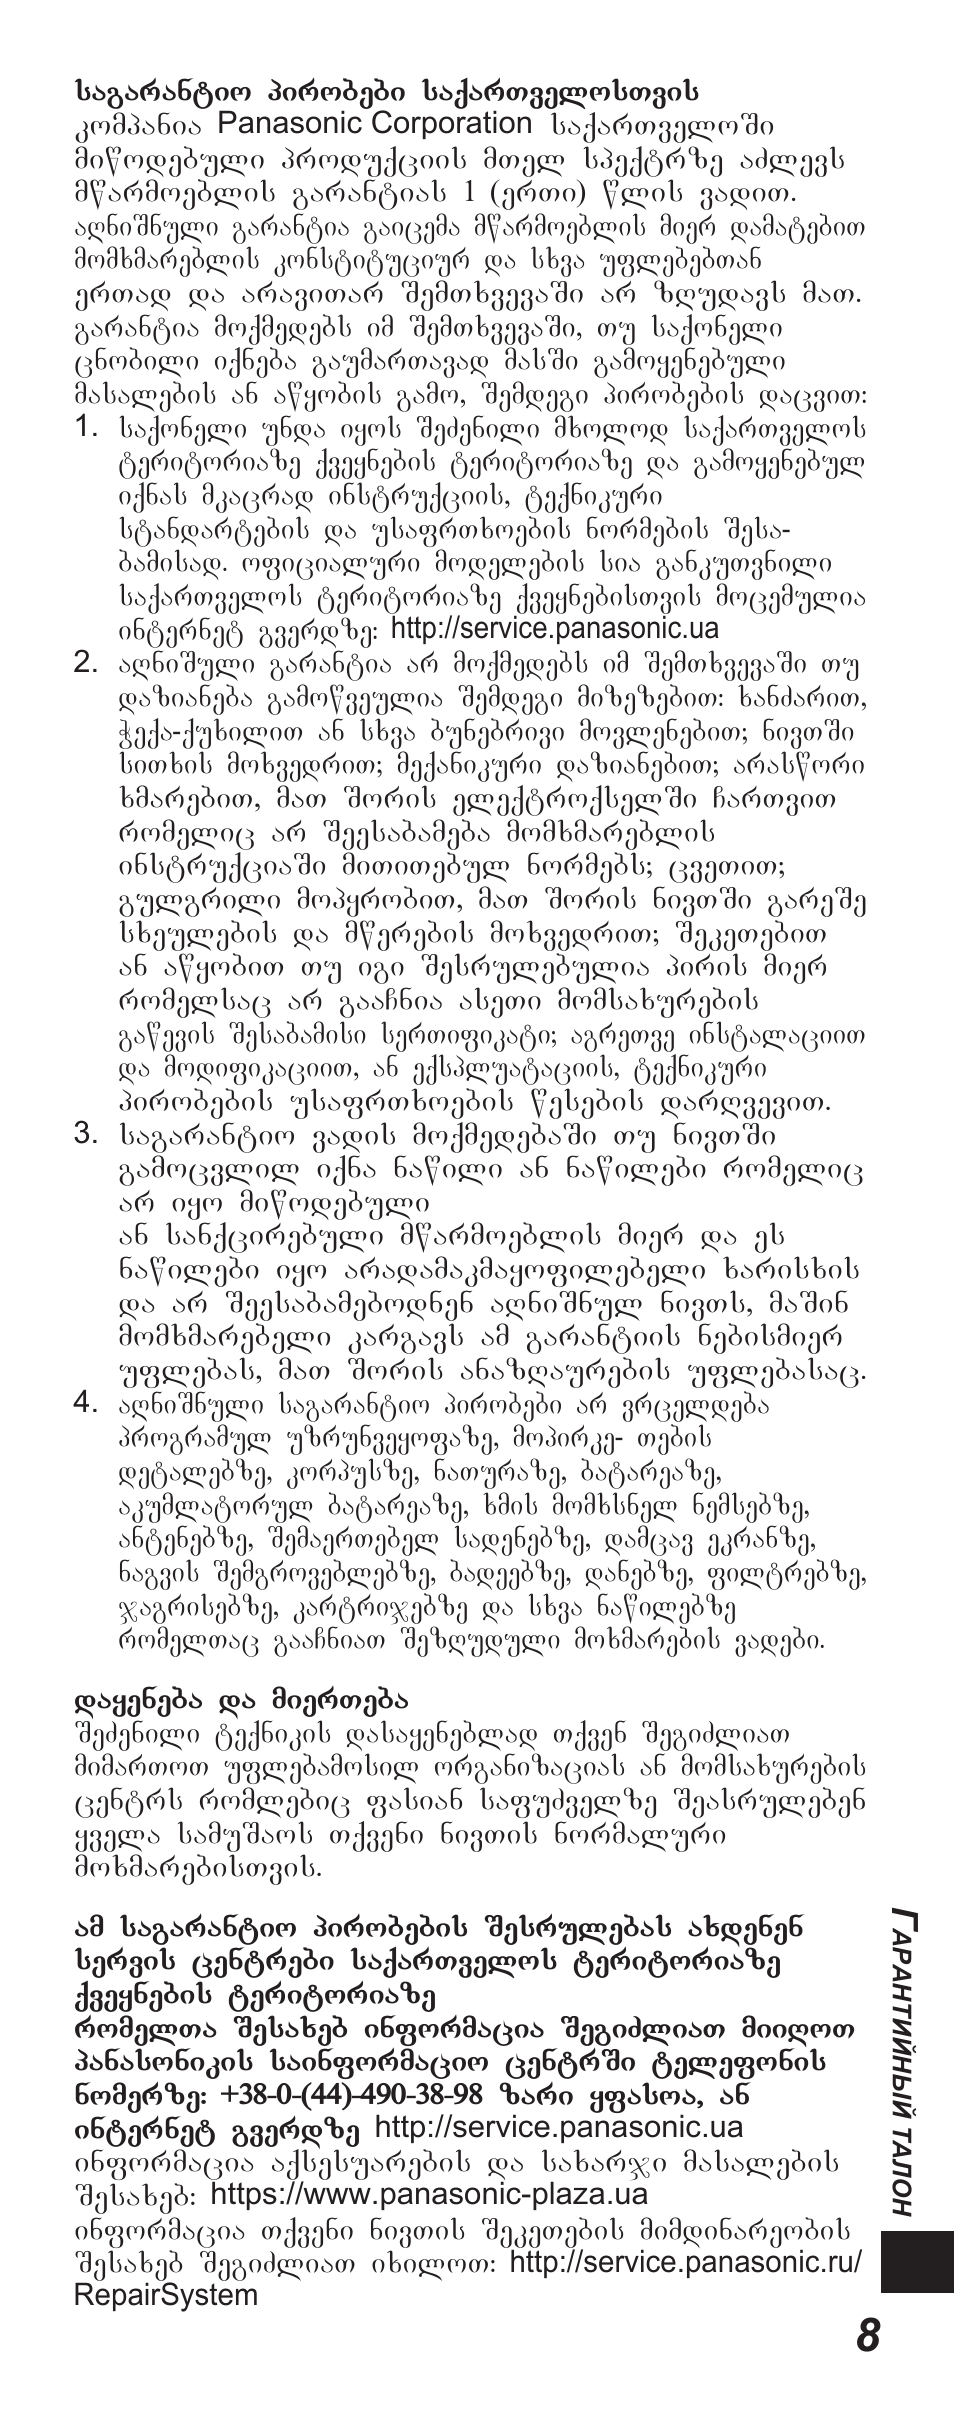 საგარანტიო პირობები საქართველოსთვის
კომპანია Panasonic Corporation საქართველოში
მიწოდებული პროდუქციის მთელ სპექტრზე აძლევს
მწარმოებლის გარანტიას 1 (ერთი) წლის ვადით.
აღნიშნული გარანტია გაიცემა მწარმოებლის მიერ დამატებით
მომხმარებლის კონსტიტუციურ და სხვა უფლებებთან
ერთად და არავითარ შემთხვევაში არ ზღუდავს მათ.
გარანტია მოქმედებს იმ შემთხვევაში, თუ საქონელი
ცნობილი იქნება გაუმართავად მასში გამოყენებული
მასალების ან აწყობის გამო, შემდეგი პირობების დაცვით:
1. საქონელი უნდა იყოს შეძენილი მხოლოდ საქართველოს
ტერიტორიაზე ქვეყნების ტერიტორიაზე და გამოყენებულ
იქნას მკაცრად ინსტრუქციის, ტექნიკური
სტანდარტების და უსაფრთხოების ნორმების შესა-
ბამისად. ოფიციალური მოდელების სია განკუთვნილი
საქართველოს ტერიტორიაზე ქვეყნებისთვის მოცემულია
ინტერნეტ გვერდზე: http://service.panasonic.ua
2. აღნიშული გარანტია არ მოქმედებს იმ შემთხვევაში თუ
დაზიანება გამოწვეულია შემდეგი მიზეზებით: ხანძარით,
ჭექა-ქუხილით ან სხვა ბუნებრივი მოვლენებით; ნივთში
სითხის მოხვედრით; მექანიკური დაზიანებით; არასწორი
ხმარებით, მათ შორის ელექტროქსელში ჩართვით
რომელიც არ შეესაბამება მომხმარებლის
ინსტრუქციაში მითითებულ ნორმებს; ცვეთით;
გულგრილი მოპყრობით, მათ შორის ნივთში გარეშე
სხეულების და მწერების მოხვედრით; შეკეთებით
ან აწყობით თუ იგი შესრულებულია პირის მიერ
რომელსაც არ გააჩნია ასეთი მომსახურების
გაწევის შესაბამისი სერთიფიკატი; აგრეთვე ინსტალაციით
და მოდიფიკაციით, ან ექსპლუატაციის, ტექნიკური
პირობების უსაფრთხოების წესების დარღვევით.
3. საგარანტიო ვადის მოქმედებაში თუ ნივთში
გამოცვლილ იქნა ნაწილი ან ნაწილები რომელიც
არ იყო მიწოდებული
ან სანქცირებული მწარმოებლის მიერ და ეს
ნაწილები იყო არადამაკმაყოფილებელი ხარისხის
და არ შეესაბამებოდნენ აღნიშნულ ნივთს, მაშინ
მომხმარებელი კარგავს ამ გარანტიის ნებისმიერ
უფლებას, მათ შორის ანაზღაურების უფლებასაც.
4. აღნიშნული საგარანტიო პირობები არ ვრცელდება
პროგრამულ უზრუნვეყოფაზე, მოპირკე- თების
დეტალებზე, კორპუსზე, ნათურაზე, ბატარეაზე,
აკუმლატორულ ბატარეაზე, ხმის მომხსნელ ნემსებზე,
ანტენებზე, შემაერთებელ სადენებზე, დამცავ ეკრანზე,
ნაგვის შემგროვებლებზე, ბადეებზე, დანებზე, ფილტრებზე,
ჯაგრისებზე, კარტრიჯებზე და სხვა ნაწილებზე
რომელთაც გააჩნიათ შეზღუდული მოხმარების ვადები.
დაყენება და მიერთება
შეძენილი ტექნიკის დასაყენებლად თქვენ შეგიძლიათ
მიმართოთ უფლებამოსილ ორგანიზაციას ან მომსახურების
ცენტრს რომლებიც ფასიან საფუძველზე შეასრულებენ
ყველა სამუშაოს თქვენი ნივთის ნორმალური
მოხმარებისთვის.
ამ საგარანტიო პირობების შესრულებას ახდენენ
სერვის ცენტრები საქართველოს ტერიტორიაზე
ქვეყნების ტერიტორიაზე
რომელთა შესახებ ინფორმაცია შეგიძლიათ მიიღოთ
პანასონიკის საინფორმაციო ცენტრში ტელეფონის
ნომერზე: +38-0-(44)-490-38-98 ზარი ყფასოა, ან
ინტერნეტ გვერდზე http://service.panasonic.ua
ინფორმაცია აქსესუარების და სახარჯი მასალების
შესახებ: https://www.panasonic-plaza.ua
ინფორმაცია თქვენი ნივთის შეკეთების მიმდინარეობის
შესახებ შეგიძლიათ იხილოთ: http://service.panasonic.ru/
RepairSystem
ГАРАНТИЙНЫЙ ТАЛОН
8